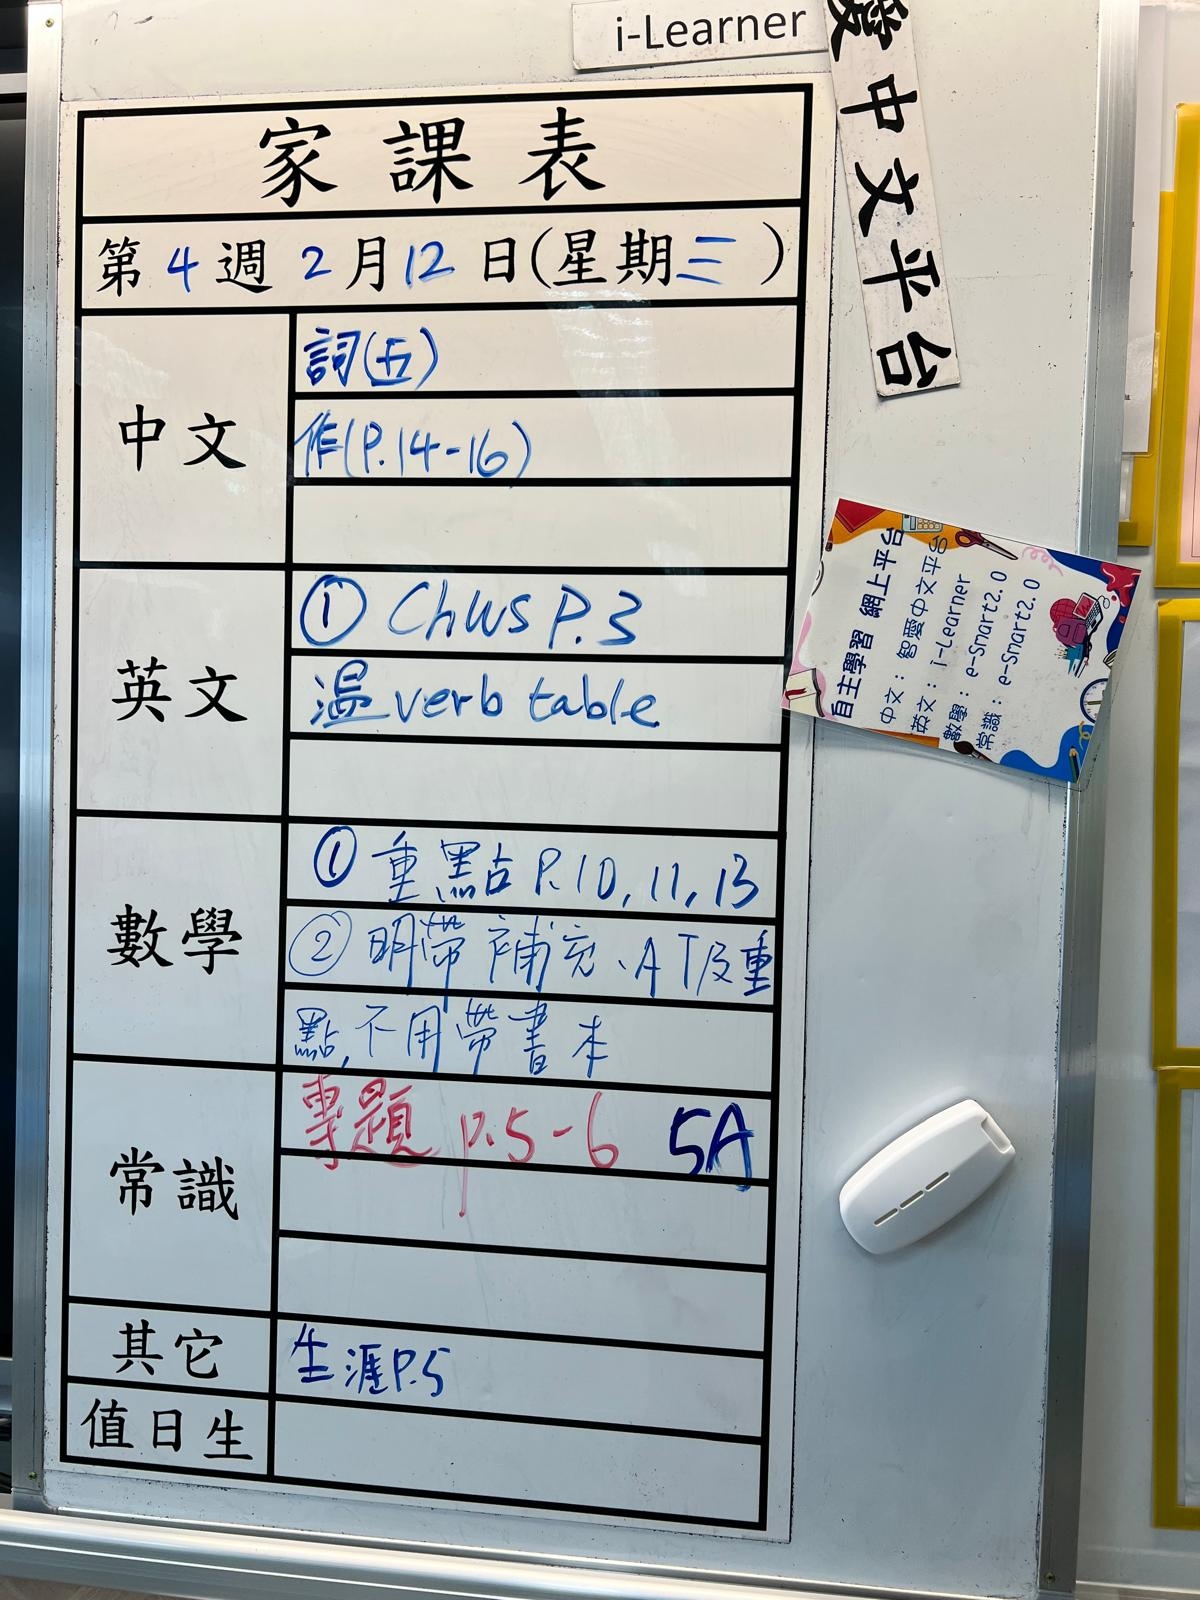 i-Learner
愛中文平台
家課表
第4週2月12日(星期三)
中文
詞(五)
作(P.14-16)
英文
① Chws P.3
溫verb table
數學
① 重點 P.10, 11, 13
② 明帶補充、AT及重
點,不用帶書本
常識
專題 p.5-6 5A
其它
生涯P.5
值日生
自主學習 網上平台
中文：智愛中文平台
英文：i-Learner
數學：e-Smart2.0
常識：e-Smart2.0